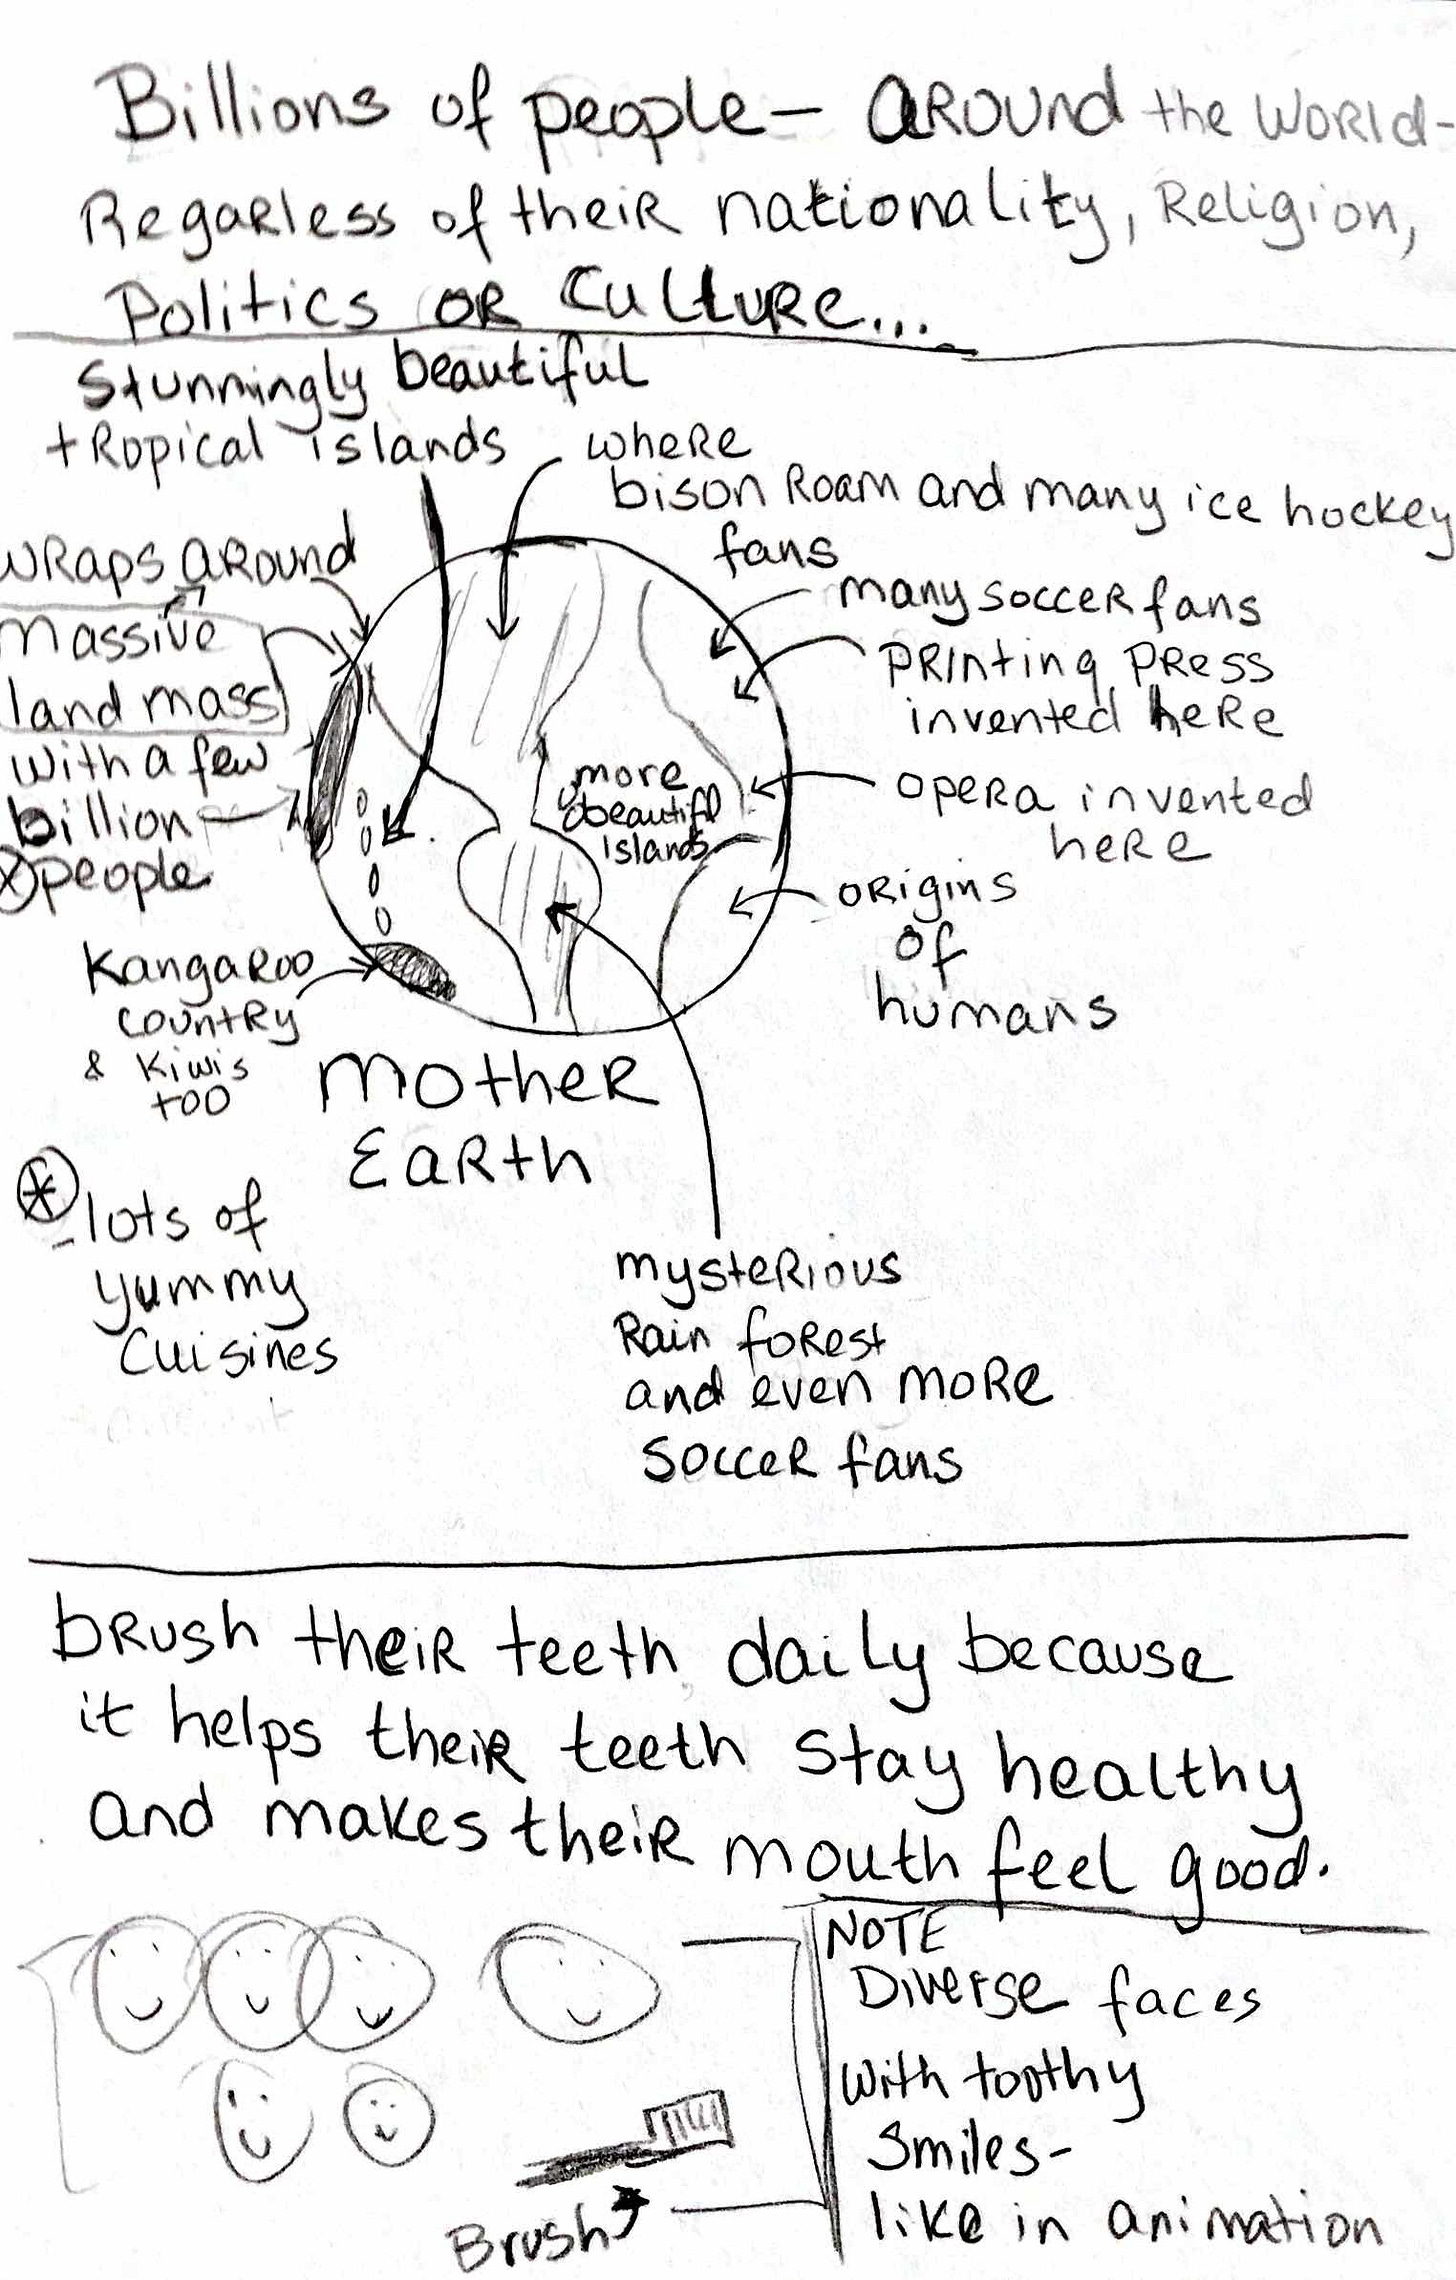 Billions of people — around the world -
Regarless of their nationality, Religion,
Politics or Culture...
Stunningly beautiful
tropical islands
where
bison roam and many ice hockey
fans
wraps around
massive
land mass
with a few
billion
people
many soccer fans
printing press
invented here
more
beautifl
islands
opera invented
here
origins
of
humans
Kangaroo
country
& kiwis
too
Mother
Earth
* lots of
yummy
cuisines
mysterious
Rain forest
and even more
soccer fans
brush their teeth daily because
it helps their teeth stay healthy
and makes their mouth feel good.
NOTE
Diverse faces
with toothy
smiles-
like in animation
Brush